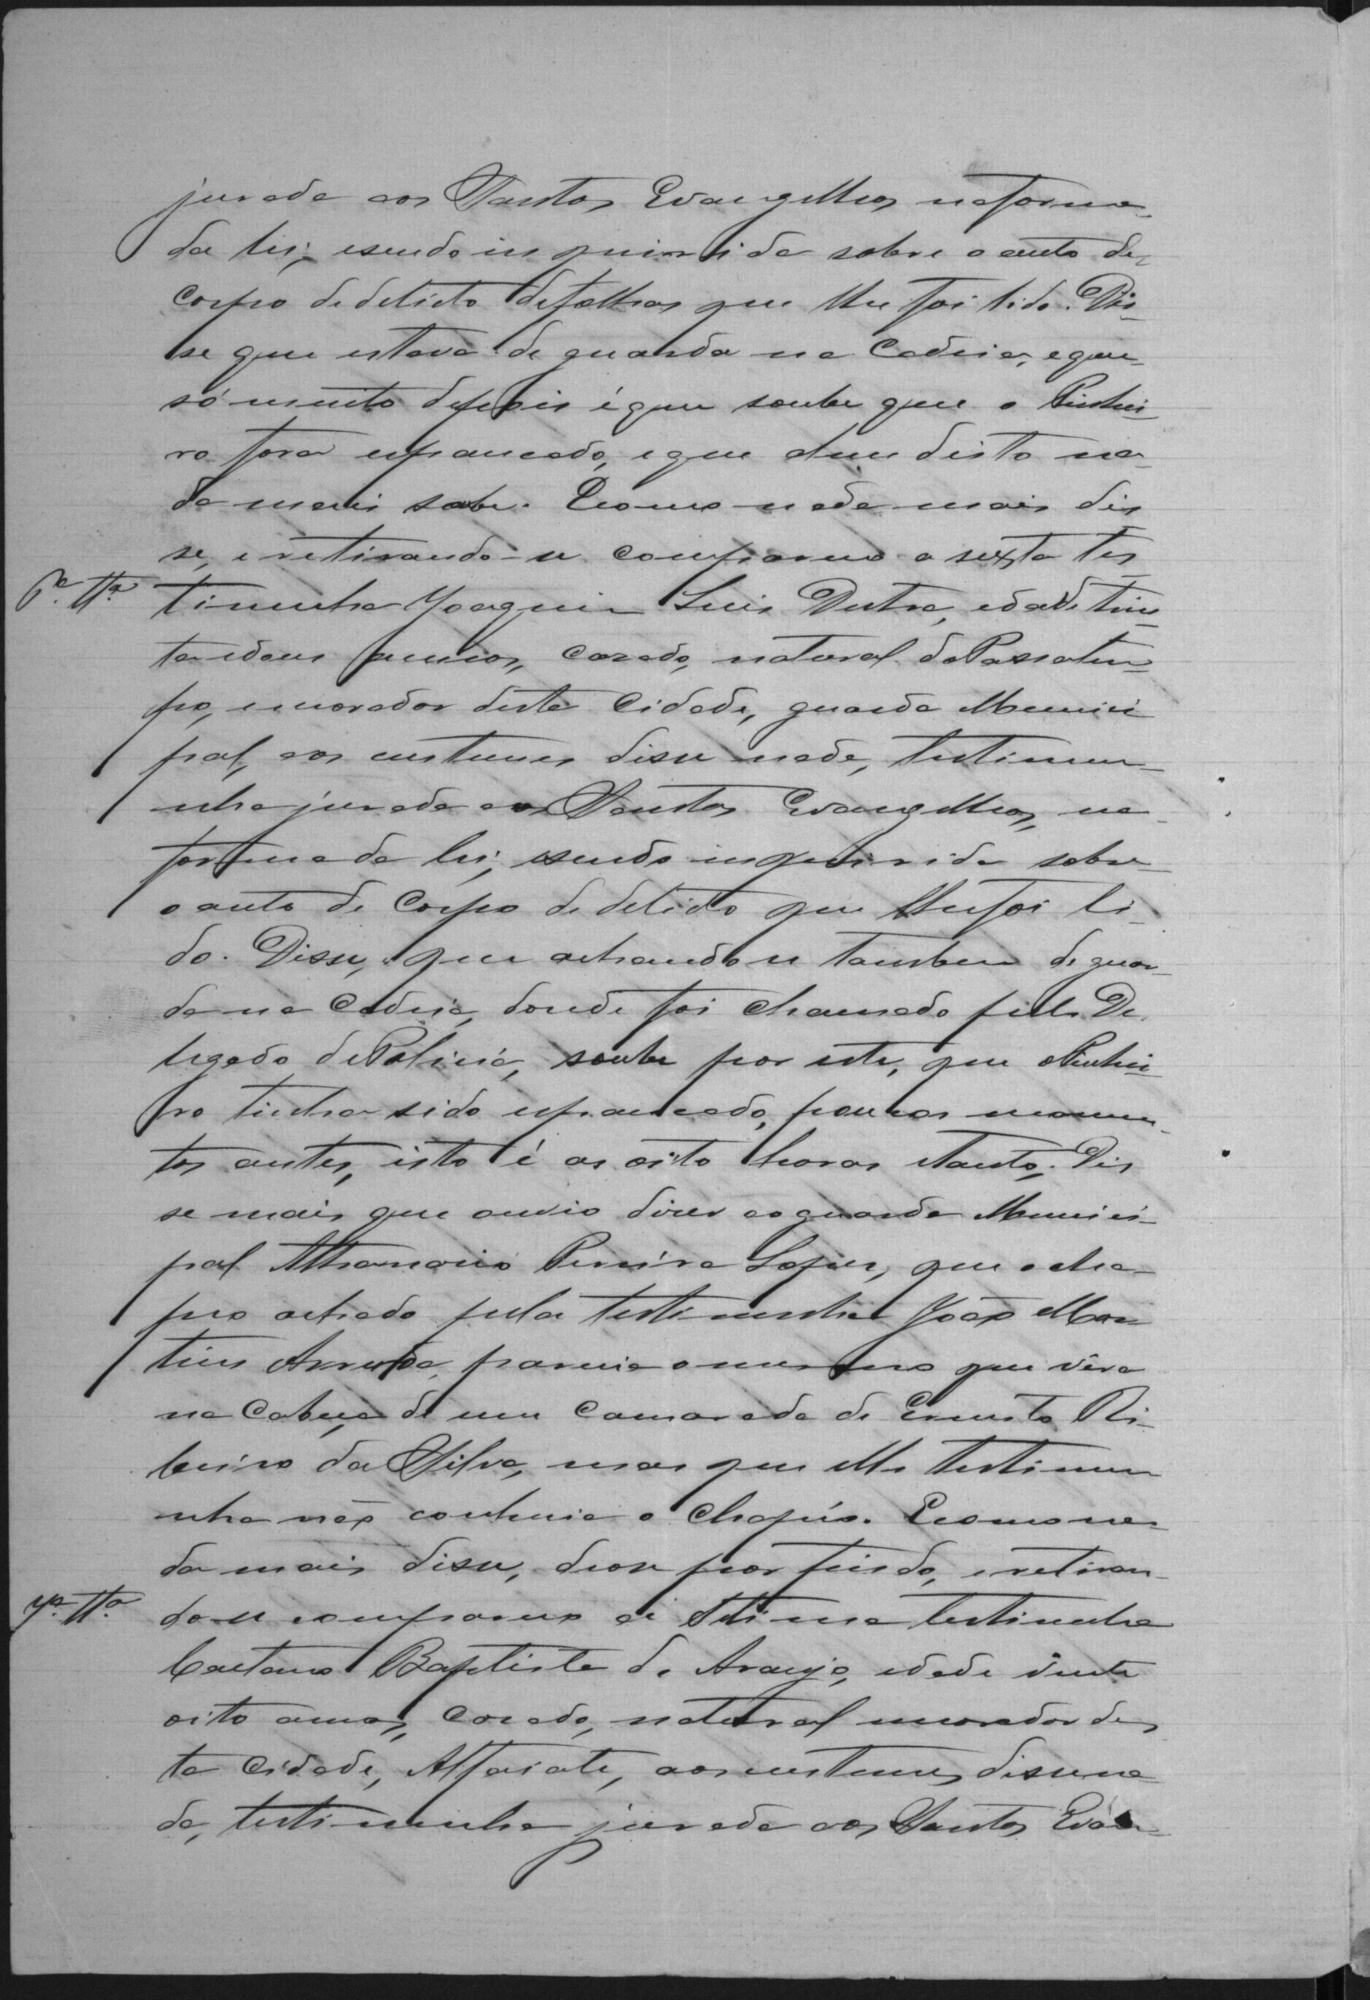 jurada aos Santos Evangelhos na forma
da lei, e sendo inquirida sobre o auto de
corpo de delicto de folhas que lhe foi lido. Dis-
se que estava de guarda na Cadeia, e que
só muito depois é que soube que o Pinhei-
ro fora espancado, e que alem disto na-
da mais sabe. E como nada mais dis
se, e retirando-se compareceo a sexta tes
6ª Ttª timunha Joaquim Luis Dutra, edade trin-
ta e dous annos, cazado, natural do Passatem-
po, e morador desta Cidade, guarda Munici
pal, aos custumes disse nada, testimu-
nha jurada aos Santos Evangelhos, na
forma da lei, e sendo inquirida sobre
o auto de corpo de delicto que lhe foi li-
do. Disse, que achando se tambem de guar-
da na Cadeia, donde foi chamado pelo De
legado de Policia, soube por este, que o Pinhei-
ro tinha sido espancado, poucos momen-
tos antes, isto é as oito horas e tanto. Dis
se mais que ouvio dizer ao guarda Munici-
pal Athanasio Pereira Lopes, que o cha-
peo achado pela testimunha João Mar
tins Arruda, parecia o mesmo que vira
na Cabeça de um Camarada de Ernesto Ri-
beiro da Silva, mas que elle testimu
nha não conhecia o chapéo. E como na-
da mais disse, deu se por findo, e retiran-
7ª Ttª do se compareceo a setima testimunha
Caetano Baptista de Araujo, edade vinte
oito annos, cazado, natural e morador des
ta Cidade, Alfaiate, aos custumes disse na
da, testimunha jurada aos Santos Evan-